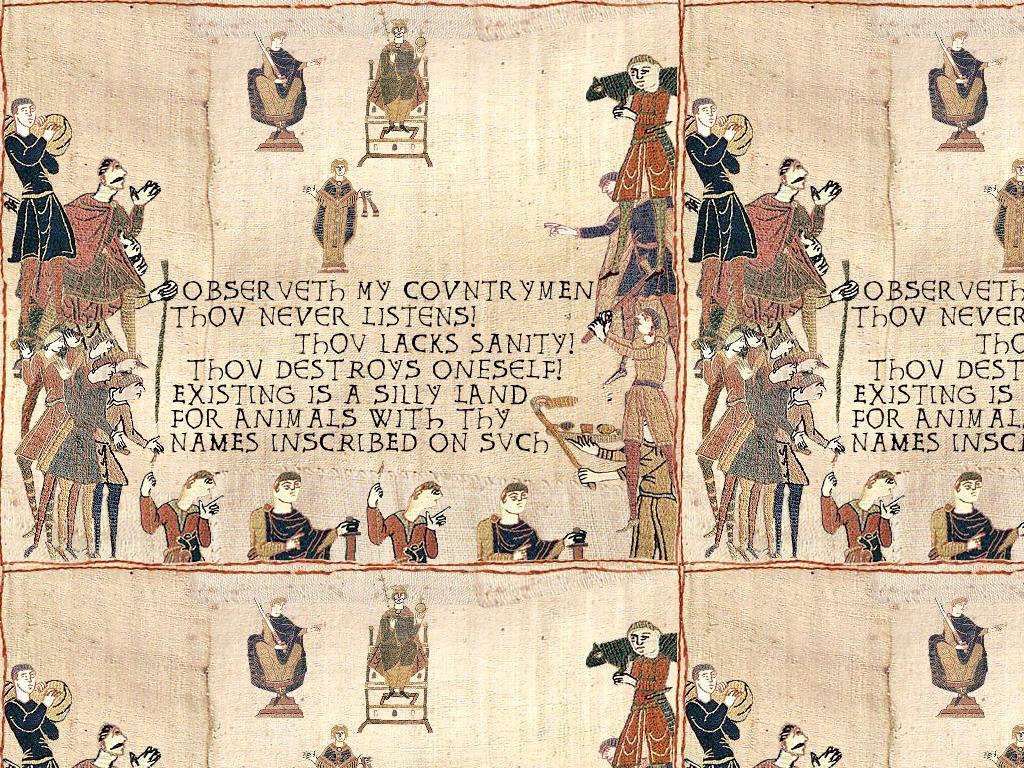 OBSERVETH MY COVNTRYMEN
THOV NEVER LISTENS!
THOV LACKS SANITY!
THOV DESTROYS ONESELF!
EXISTING IS A SILLY LAND
FOR ANIMALS WITH THY
NAMES INSCRIBED ON SVCH
OBSERVETH
THOV NEVER
THO
THOV DEST
EXISTING IS
FOR ANIMAL
NAMES INSC